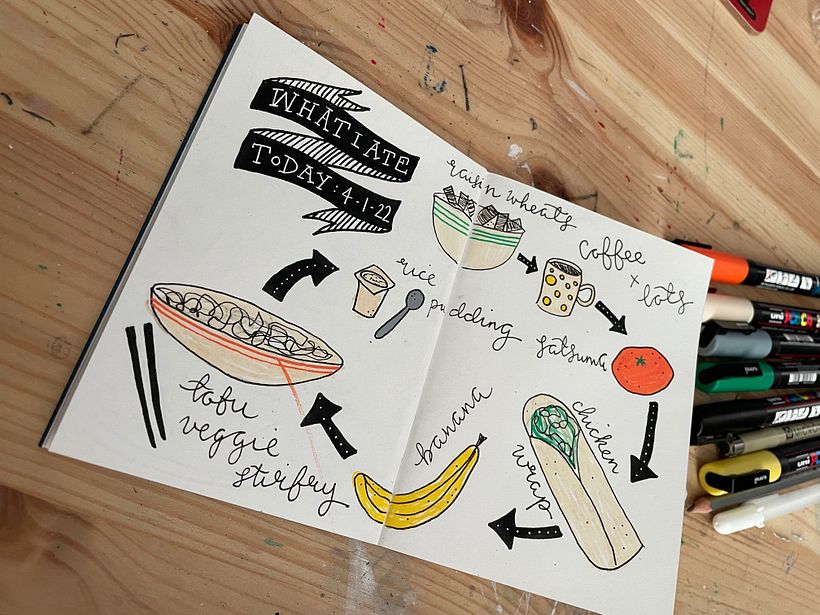 WHAT I ATE
TODAY · 4-1-22
raisin wheats
coffee
x lots
satsuma
chicken
wrap
banana
tofu
veggie
stirfry
rice
pudding
uni